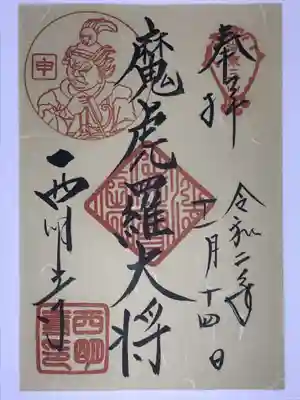 奉拝
令和二年
十一月十四日
魔虎羅大将
申
西明寺
西明